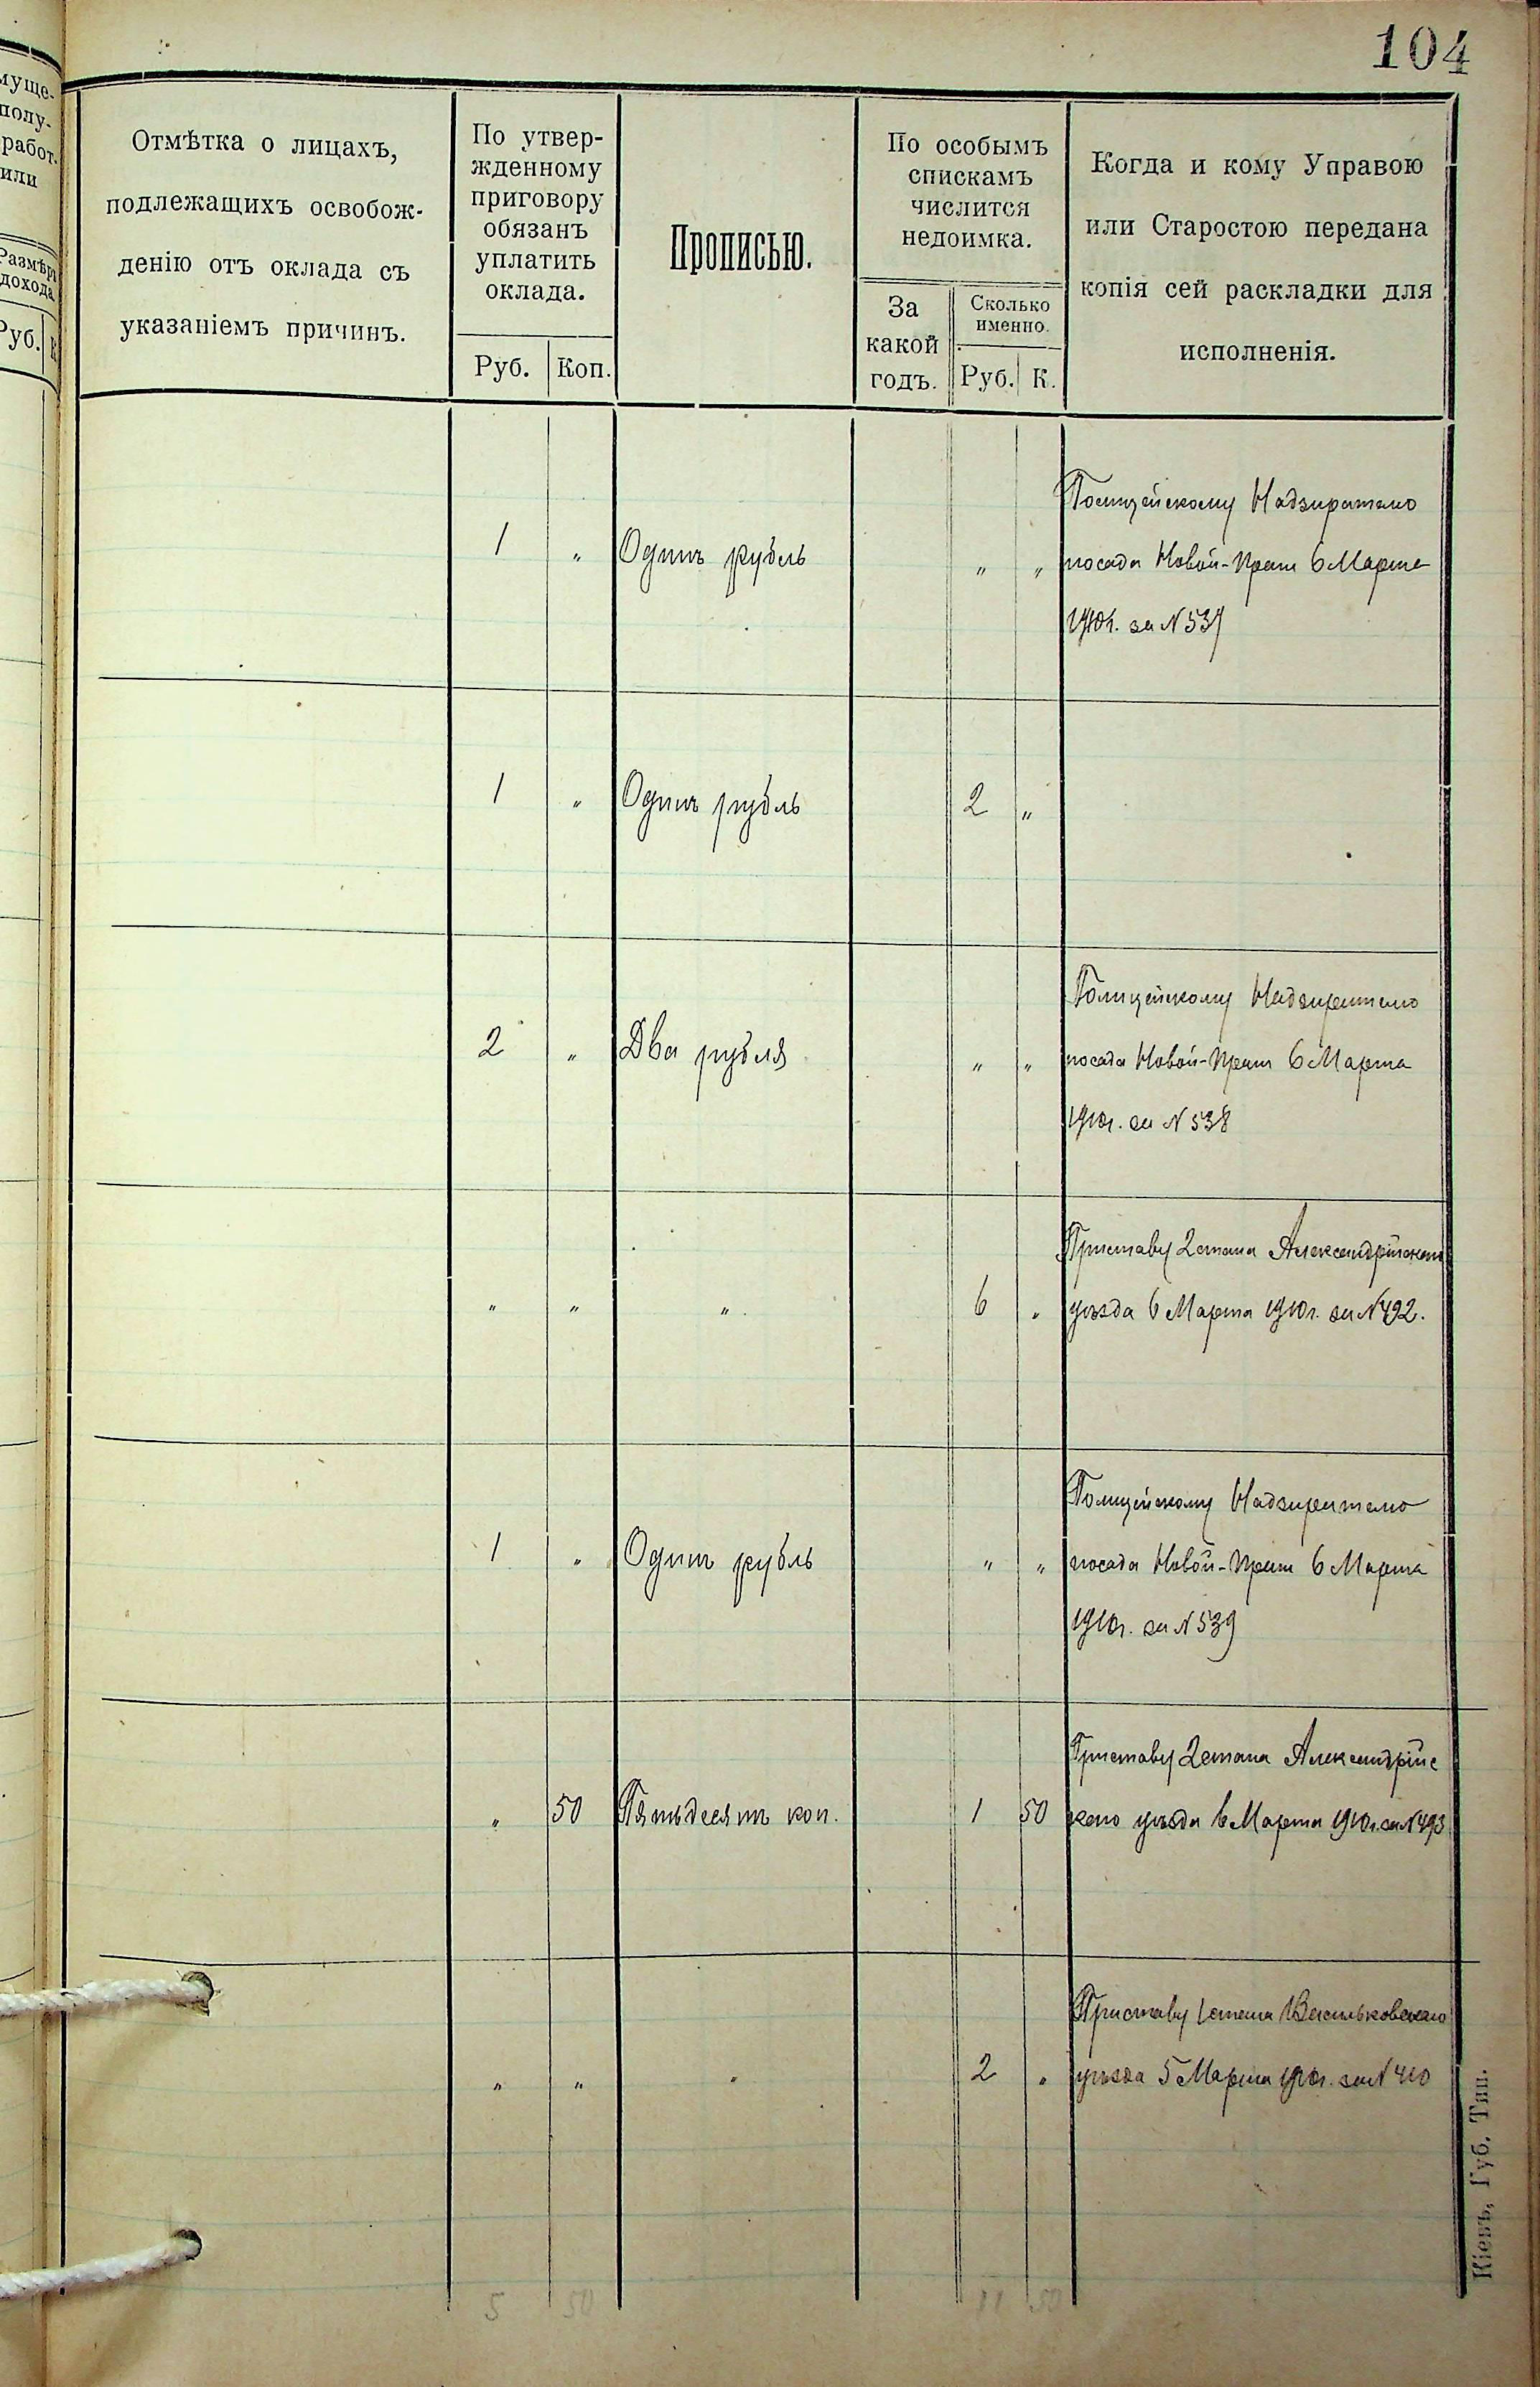 104
муще-
полу-
работ.
или
Размѣръ
дохода
Руб.
Отмѣтка о лицахъ,
подлежащихъ освобож-
денію отъ оклада съ
указаніемъ причинъ.
По утвер-
жденному
приговору
обязанъ
уплатить
оклада.
Руб. Коп.
Прописью.
По особымъ
спискамъ
числится
недоимка.
За
какой
годъ.
Сколько
именно.
Руб. К.
Когда и кому Управою
или Старостою передана
копія сей раскладки для
исполненія.
Полицейскому Надзирателю
1 „ Одинъ рубль „ „ посада Новой-Праги 6 Марта
1910г. за N 537
1 „ Одинъ рубль 2 „
Полицейскому Надзирателю
2 „ Два рубля „ „ посада Новой-Праги 6 Марта
1910г. за N 538
Приставу 2 стана Александрійскаго
„ „ „ 6 „ уѣзда 6 Марта 1910г. за N 492.
Полицейскому Надзирателю
1 „ Одинъ рубль „ „ посада Новой-Праги 6 Марта
1910г. за N 539
Приставу 2 стана Александрійс
„ 50 Пятьдесятъ коп. 1 50 каго уѣзда 6 Марта 1910г. за N 493
Приставу 1 стана Васильковскаго
„ „ „ 2 „ уѣзда 5 Марта 1910г. за N 410
5 50 11 50
Кіевъ, Губ. Тип.